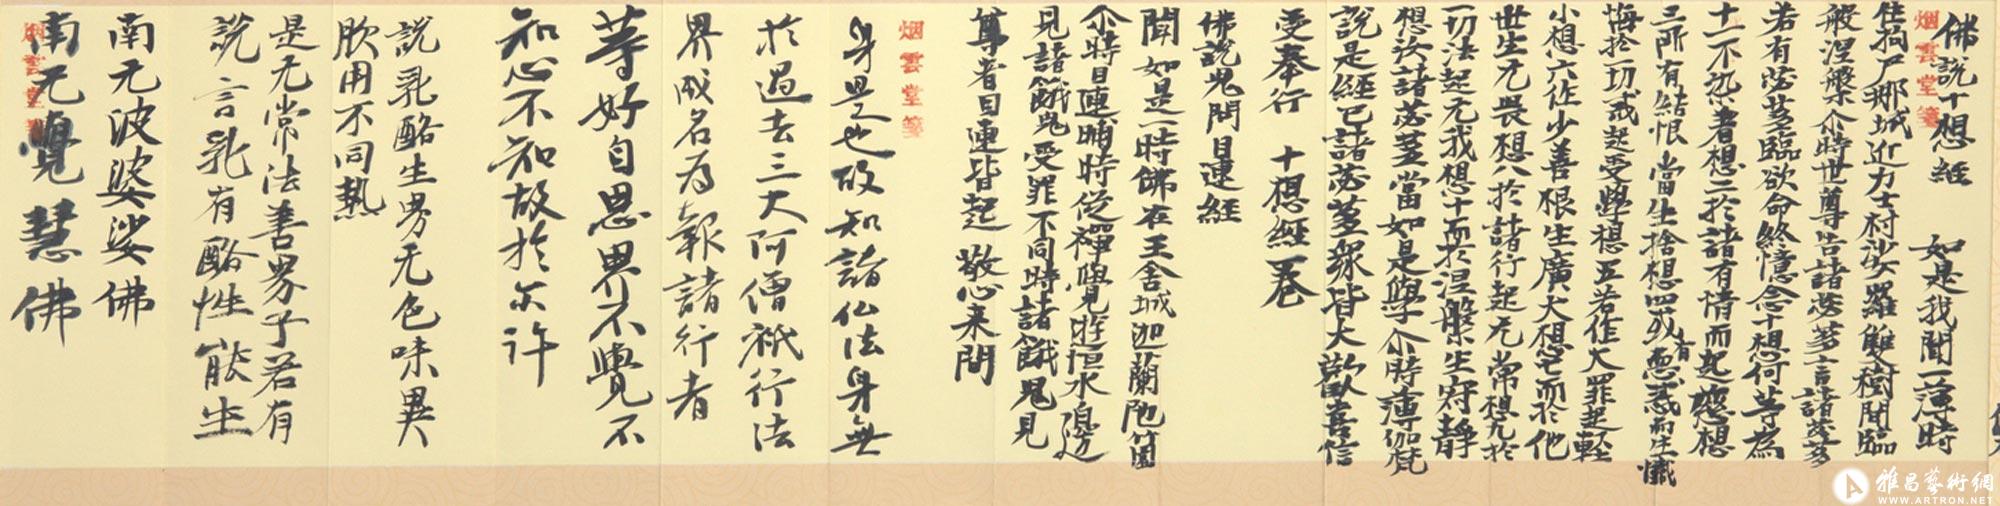 佛說十想經 如是我聞一薄時
住拘尸那城近力士村娑羅雙樹間臨
般涅槃尒時世尊告諸苾芻言諸苾芻
若有苾芻臨欲命終憶念十想何等為
十一不染著想二於諸有情而起慈想
三所有結恨當生捨想四或有惡戒而生懺
悔於一切戒起受學想五若作大罪起輕
小想六作少善根生廣大想七而於他
世生无畏想八於諸行起无常想九於
一切法起无我想十而於涅槃生寂靜
想汝諸苾芻當如是學尒時薄伽梵
說是經已諸苾芻眾皆大歡喜信
受奉行 十想經一卷
佛說鬼問目連經
聞如是一時佛在王舍城迦蘭陀
尒時目連晡時從禪覺遊恒水邊
見諸餓鬼受罪不同時諸餓鬼見
尊者目連皆起敬心来問
烟雲堂箋
身是也故知諸仏法身無
於過去三大阿僧祇行法
界成名为報諸行者
等好自思界不覺不
知心不知故於尒許
說乳酪生男无色味異
服用不同熱
是无常法善男子若有
說言乳有酪性能生
南无波婆娑佛
南无覺慧佛
烟雲堂箋
烟雲堂箋
雅昌藝術網
WWW.ARTRON.NET